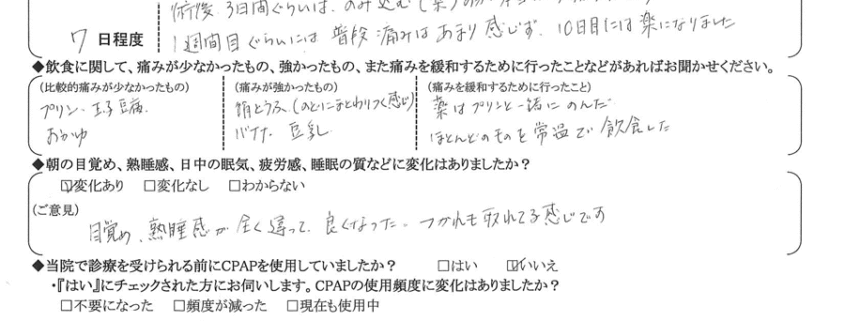 術後、3日間ぐらいは、のみ込む
7 日程度
1週間目ぐらいには 普段 痛みは あまり 感じず、10日目には 楽になりました
◆飲食に関して、痛みが少なかったもの、強かったもの、また痛みを緩和するために行ったことなどがあればお聞かせください。
(比較的痛みが少なかったもの) (痛みが強かったもの) (痛みを緩和するために行ったこと)
プリン、玉子豆腐、 (のどにまとわりつく感じ) 薬はプリンと一緒にのんだ
おかゆ バナナ 豆乳 ほとんどのものを常温で飲食した
◆朝の目覚め、熟睡感、日中の眠気、疲労感、睡眠の質などに変化はありましたか?
☑変化あり □変化なし □わからない
(ご意見)
目覚め、熟睡感が全く違って、良くなった。つかれも取れてる感じです
◆当院で診療を受けられる前にCPAPを使用していましたか? □はい ☑いいえ
・『はい』にチェックされた方にお伺いします。CPAPの使用頻度に変化はありましたか?
□不要になった □頻度が減った □現在も使用中